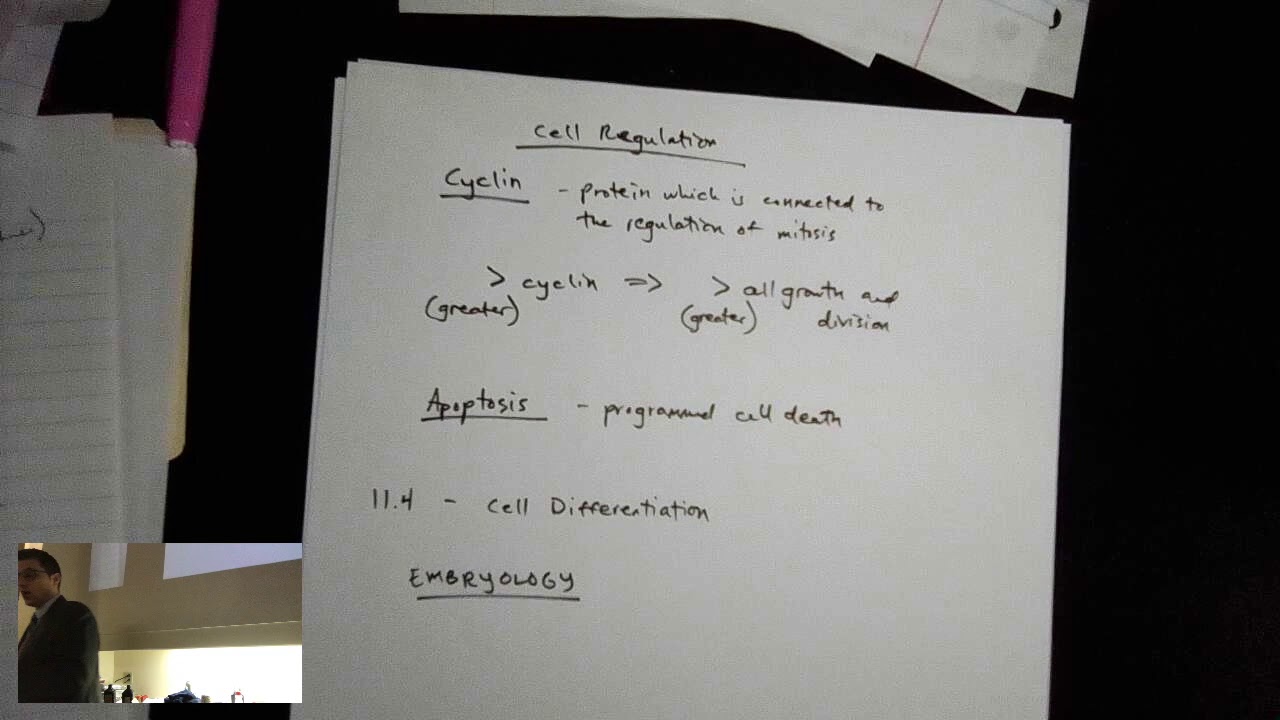 Cell Regulation
Cyclin - protein which is connected to
the regulation of mitosis
> cyclin => > cell growth and
(greater) (greater) division
Apoptosis - programmed cell death
11.4 - Cell Differentiation
EMBRYOLOGY